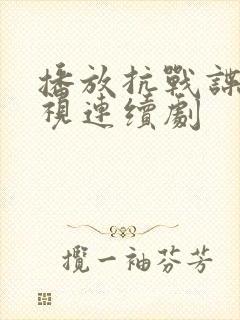 播放抗戰諜
視連續劇
攬一袖芬芳